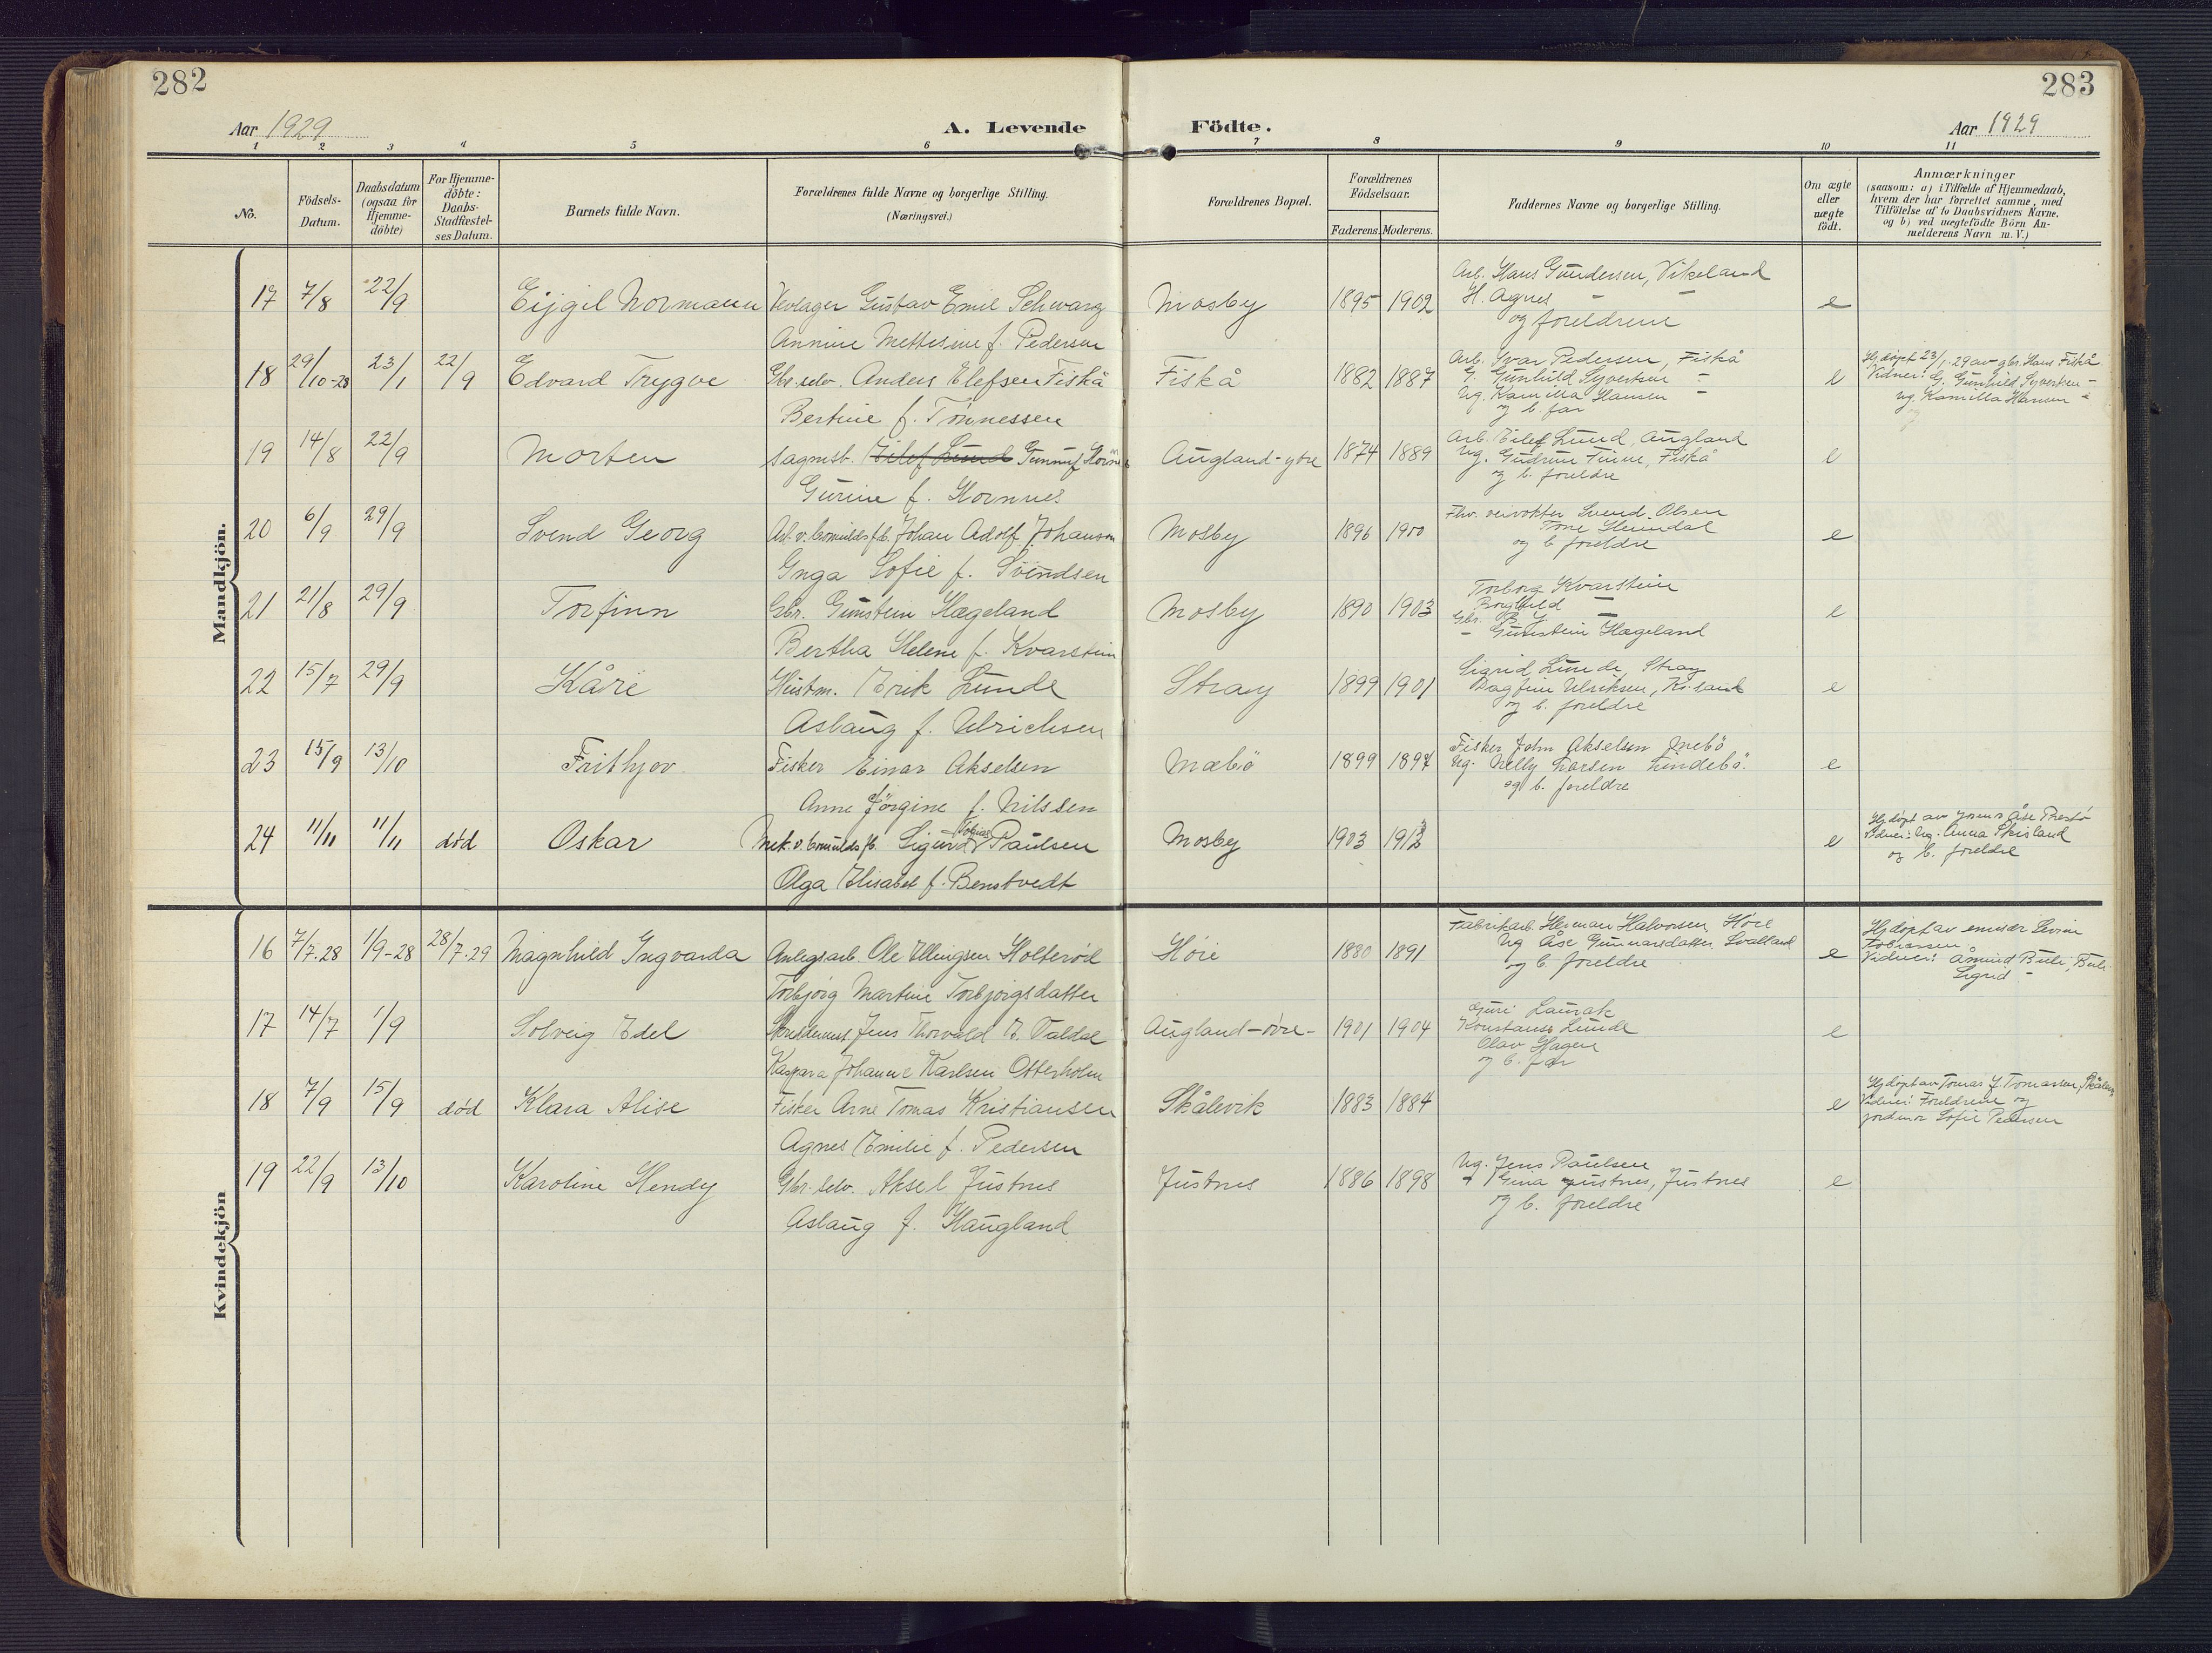 282
283
Aar 1929
A. Levende
Födte.
Aar 1929
1 2 3 4 5 6 7 8 9 10 11
No.
Födsels-
Datum.
Daabsdatum
(ogsaa for
Hjemme-
döbte)
For Hjemme-
döbte:
Daabs-
Stadfæstel-
ses Datum.
Barnets fulde Navn.
Forældrenes fulde Navne og borgerlige Stilling.
(Næringsvei.)
Forældrenes Bopæl.
Forældrenes
Födselsaar.
Faderens. Moderens.
Faddernes Navne og borgerlige Stilling.
Om ægte
eller
uægte
födt.
Anmærkninger
(saasom: a) i Tilfælde af Hjemmedaab,
hvem der har forrettet samme, med
Tilföielse af to Daabsvidners Navne,
og b) ved uægtefödte Börn An-
melderens Navn m. V.)
Mandkjön.
Arb. Hans Gundersen, Vikeland
17 7/8 22/9 Eijgil Normann Gustav Emil Schwarz Mosby 1895 1902 H. Agnes - - e
og foreldrene
Annine Mettesine f. Pedersen
Arb. Ivar Pedersen, Fiskå
Hj.døpt 23/1-29 av gbr. Hans Fiskå
18 29/10-28 23/1 22/9 Edvard Trygve Gbr. selv. Anders Elefsen Fiskå Fiskå 1882 1887 G. Gunhild Syvertsen - e Vidner: G. Gunhild Syvertsen -
Ug. Kamilla Hansen -
Ug. Kamilla Hansen -
og b. far
Bertine f. Tønnessen
Arb. Eilef Lund, Augland
19 14/8 22/9 Morten sagmst. Eilef Lund Gunnuf Augland-ytre 1874 1889 Ug. Gudrun Finne, Fiskå e
og b. foreldre
Gurine f. Hornnes
Fhv. veivokter Svend Olsen
20 6/9 29/9 Svend Georg Johan Adolf Johanson Mosby 1896 1900 Tone Heimdal e
og b. foreldre
Inga Sofie f. Svendsen
Torborg Kvarstein
21 21/8 29/9 Torfinn Gbr. Gunstein Hægeland Mosby 1890 1903 Borghild - e
- Gunstein Hægeland
Bertha Helene f. Kvarstein
Sigrid Lunde, Stray
22 15/7 29/9 Kåre Hustm. Erik Lunde Stray 1899 1901 Dagfinn Ulriksen, Kr.sand e
og b. foreldre
Aslaug f. Ulrichsen
Fisker John Akselsen
23 15/9 13/10 Frithjov Fisker Einar Akselsen Mæbö 1899 1897 Ug. Nelly Larsen Lindebö. e
og b. foreldre
Anne Jörgine f. Nilssen
Hj.døpt av jomor Åse
24 11/11 11/11 død Oskar Mek. v. Sigurd Tobias Paulsen Mosby 1903 1912 e Vidner: Ug. Anna Skisland
og b. foreldre
Olga Elisabet f. Benstvedt
Kvindekjön
Fabrikarb. Herman Halvorsen Høie
Hj.døpt av
16 7/7.28 1/9-28 28/7.29 Magnhild Ingvarda Anlegsarb. Ole Ellingsen Holterød Høie 1880 1891 Ug Åse Gunnarsdatter e
og b. foreldre
Vidner: Åmund
Sigrid -
Torbjørg Martine Torbjørgsdatter
Guri Laurak
17 14/7 1/9 Solveig Edel Jens Thorvald Augland-øvre- 1901 1904 Konstanse Lunde e
Olav Hagen
og b. far
Kaspara Johanne Karlsen Otterholm
Hj.døpt av Tomas J. Tomassen, Skålevig
18 7/9 15/9 død Klara Alise Fisker Arne Tomas Kristiansen Skålevik 1883 1884 e Vidner: Foreldrene og
jordmor Sofie Pedersen
Agnes Emilie f. Pedersen
Ug. Jens Paulsen
19 22/9 13/10 Karoline Hendy Gbr. selv. Aksel Justnes Justnes 1886 1898 - Gina Justnes, Justnes e
og b. foreldre
Aslaug f. Haugland